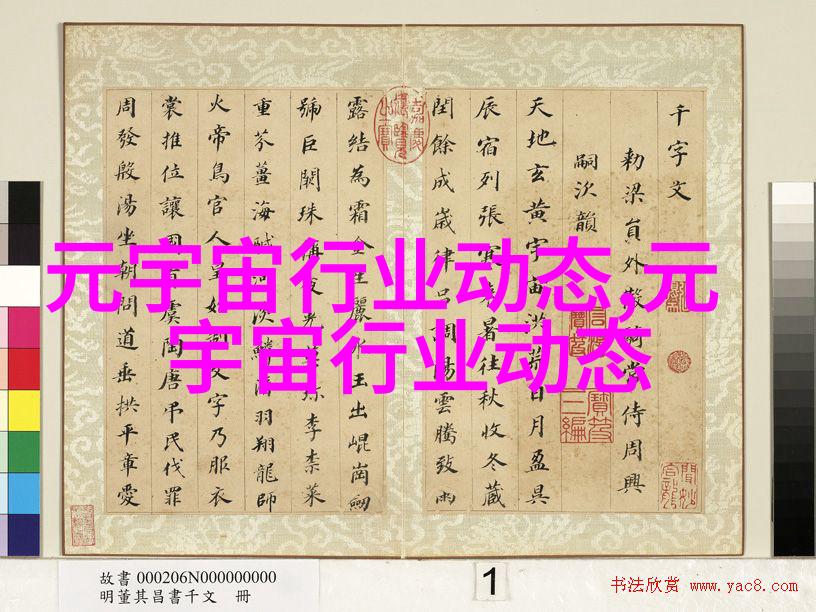 元宇宙行业动态,元
宇宙行业动态
千字文
勅梁員外散騎常侍周興
嗣次韻
天地玄黃宇宙洪荒日月盈昃
辰宿列張寒來暑往秋收冬藏
閏餘成歲律呂調陽雲騰致雨
露結為霜金生麗水玉出崐崗劒
號巨闕珠稱夜光菓珍李柰菜
重芥薑海醎河淡鱗潛羽翔龍師
火帝鳥官人皇始制文字乃服衣
裳推位讓國有虞陶唐弔民伐罪
周發殷湯坐朝問道垂拱平章愛
故書 000206N000000000
明董其昌書千文 冊
1
书法欣赏 www.yac8.com